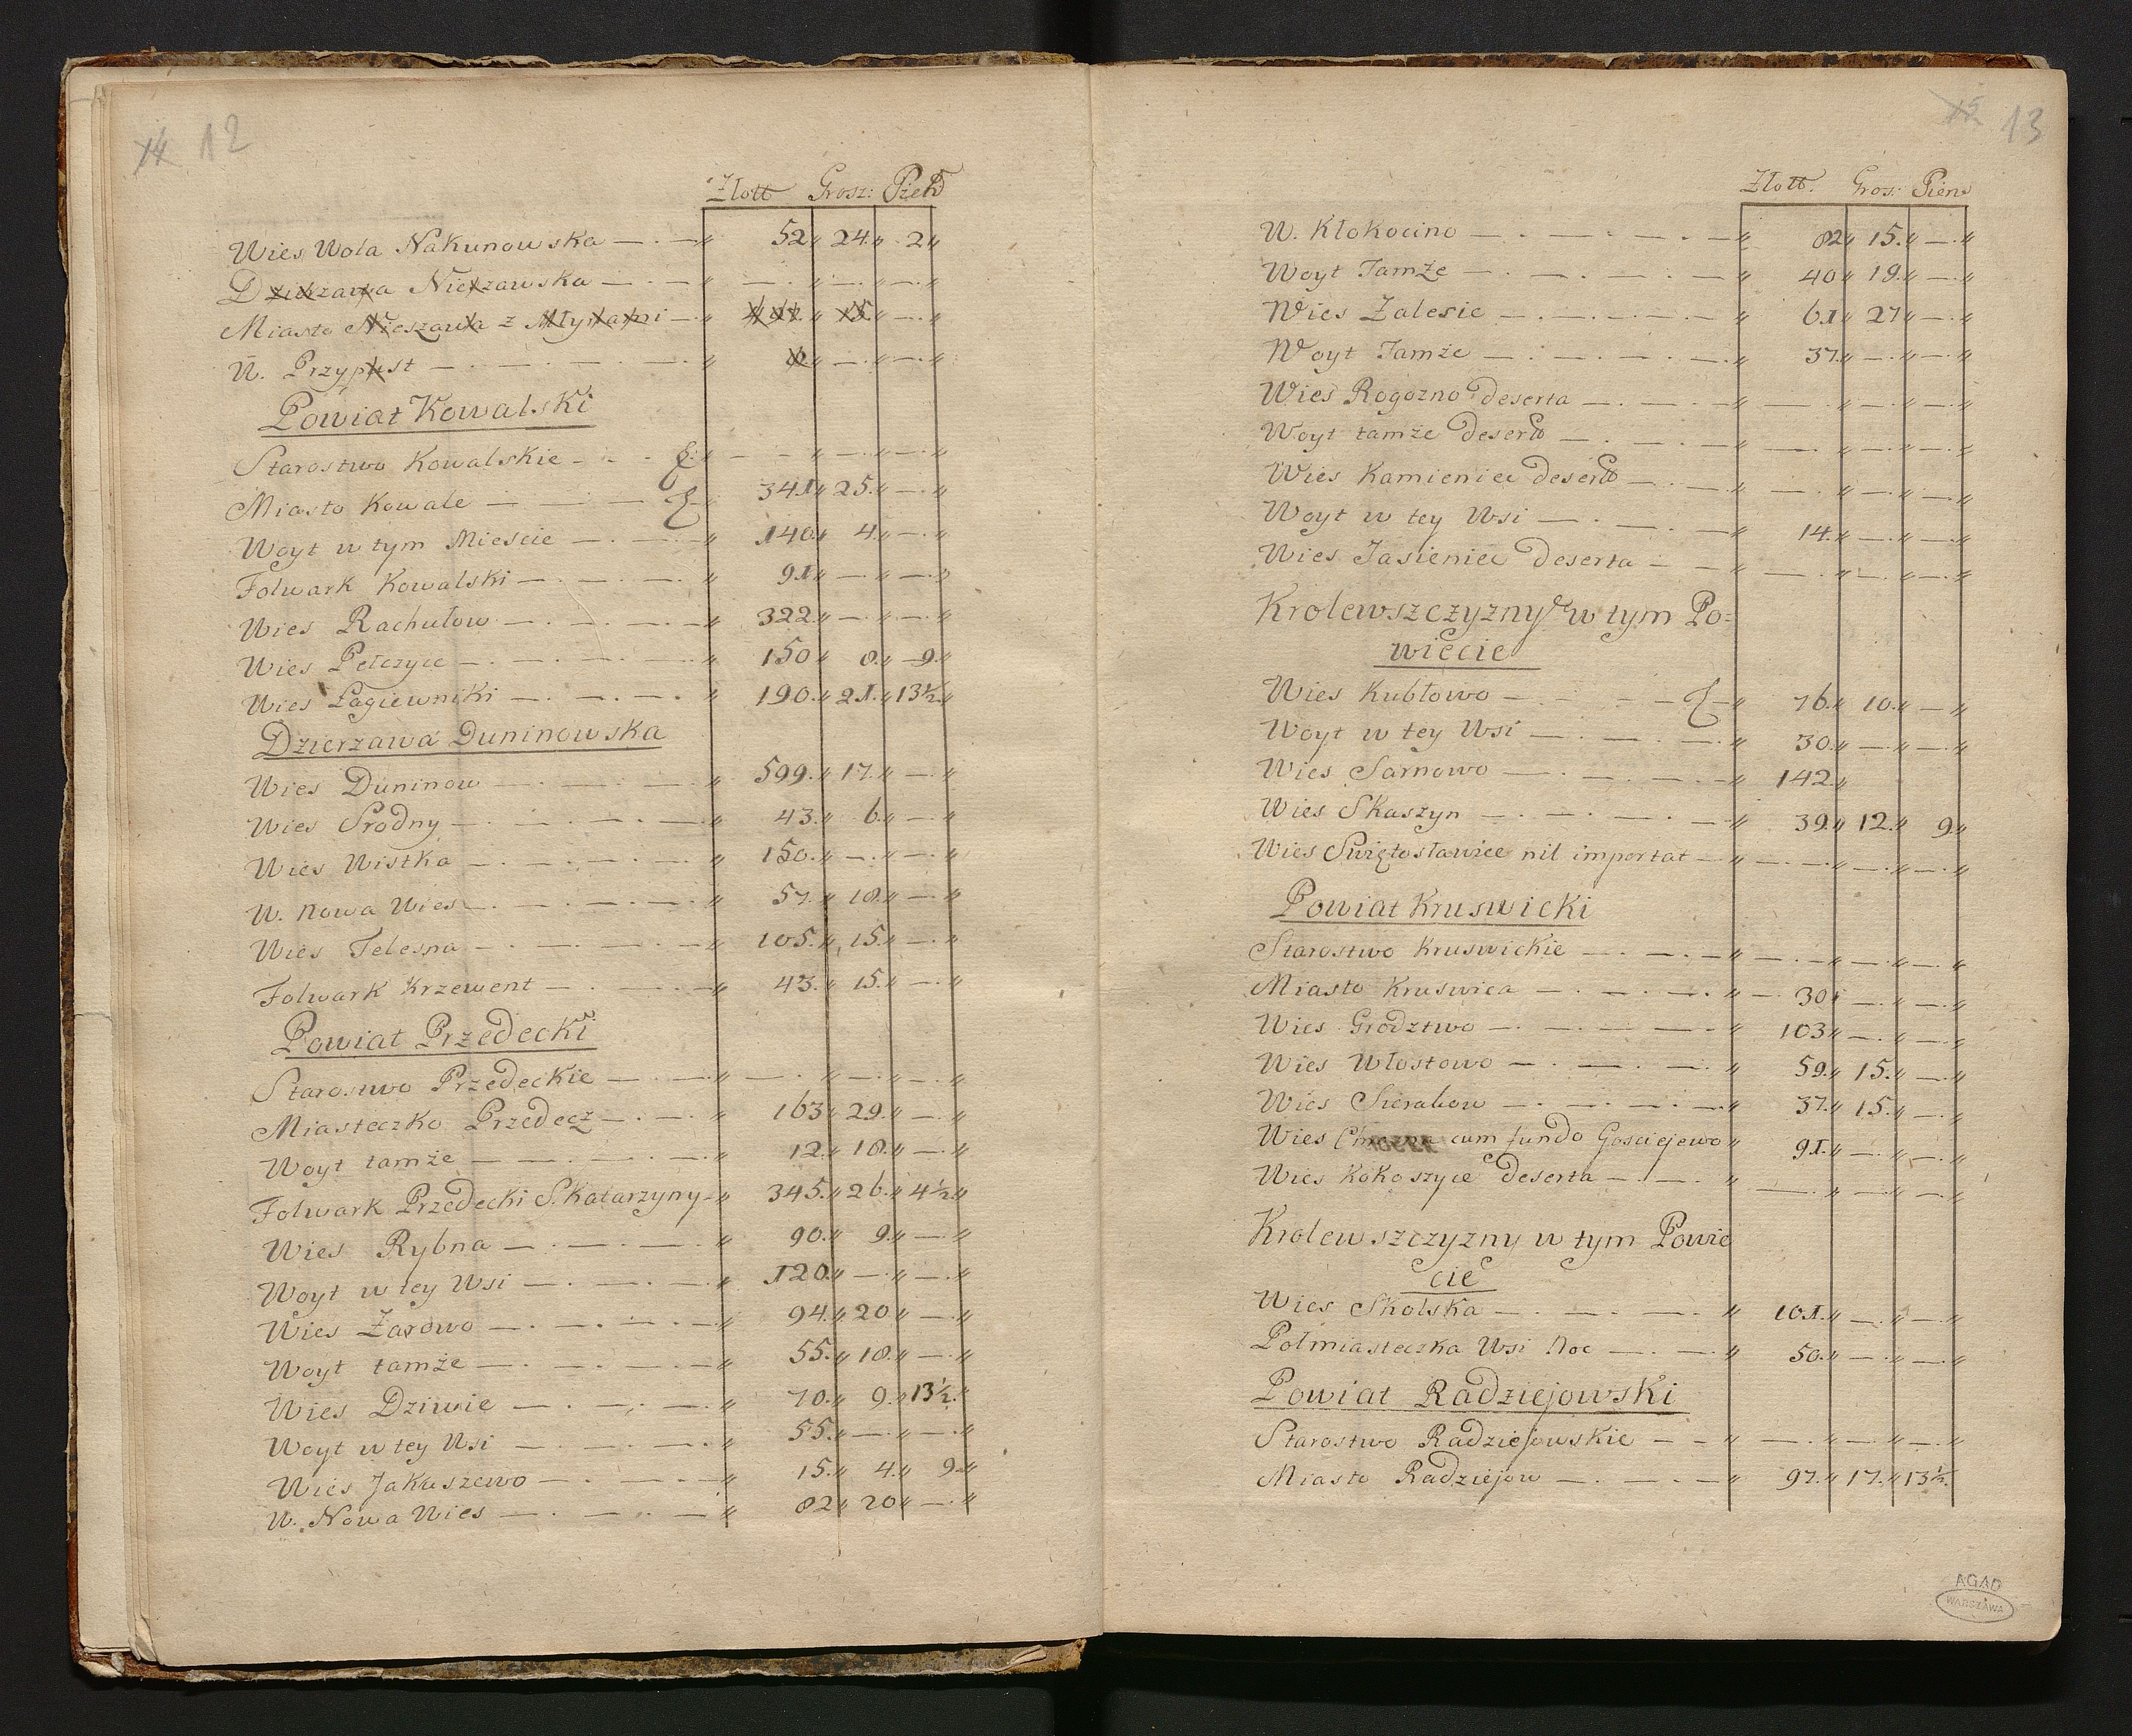 14 12
Złott Grosz: Pień
Wies Wola Nakunowska — . — " 52 " 24. " 2 "
Dzierzawa Nieszawska — . — " — . " — . " — . "
Miasto Nieszawa z Młynami — . " 15. " — . "
W. Przypust — . — . — . — . " — . " — . "
Powiat Kowalski
Starostwo Kowalskie — . — " — — " — . " — . "
Miasto Kowale — . — . — 341 " 25. " — . "
Woyt w tym Miescie — . — . — " 140. " 4. " — . "
Folwark Kowalski — . — . — . " 91 " — . " — . "
Wies Rachutow — . — . — . — " 322. " — . " — . "
Wies Pełczyce — . — . — . — " 150 " 8. " 9. "
Wies Łagiewniki — . — . — . " 190. " 21. " 13½ "
Dzierzawa Duninowska
Wies Duninow — . — . — . " 599. " 17. " — . "
Wies Srodny — . — . — . — " 43. " 6. " — . "
Wies Wistka — . — . — . — . " 150. " — . " — . "
W. Nowa Wies — . — . — . — . " 57. " 18. " — . "
Wies Telesna — . — . — . — " 105. " 15. " — . "
Folwark Krzewent — . — . — " 43. " 15. " — . "
Powiat Przedecki
Starostwo Przedeckie — . — " — . " — . " — . "
Miasteczko Przedecz — . — . " 163 " 29. " — . "
Woyt tamże — — . — . — . " 12. " 18. " — . "
Folwark Przedecki S. Katarzyny — " 345. " 26. " 4½ "
Wies Rybna — . — . — . " 90. " 9. " — . "
Woyt w tey Wsi — . — . — . " 120. " — . " — . "
Wies Żarowo — . — . — . — " 94. " 20 " — . "
Woyt tamże — . — . — . — " 55. " 18. " — . "
Wies Dziwie — . — . — . " 70. " 9. " 13½. "
Woyt w tey Wsi — . — . — . " 55. " — . " — . "
Wies Jakuszewo — . — . — " 15. " 4. " 9. "
W. Nowa Wies — . — . — " 82 " 20 " — . "
15 13
Złott. Gros: Pien
W. Kłokocino — . — . — . — " 82 " 15. " — . "
Woyt Tamże — . — . — . — " 40 " 19. " — . "
Wies Zalesie — . — . — . — " 61 " 27 " — . "
Woyt Tamże — . — . — . — " 37. " — . " — . "
Wies Rogozno deserta — . — . — " — . " — . " — . "
Woyt tamże deserta — . — . — " — . " — . " — . "
Wies Kamieniec deserta — . — " — . " — . " — . "
Woyt w tey Wsi — . — . — " 14. " — . " — . "
Wies Jasieniec deserta — — " — . " — . " — . "
Krolewszczyzny w tym Po=
wiecie
Wies Kubłowo — . — . — " 76. " 10. " — "
Woyt w tey Wsi — . — . — " 30. " — . " — . "
Wies Sarnowo — . — . — . — " 142. "
Wies Skaszyn — . — . — . — " 39. " 12. " 9. "
Wies Swiętosławice nil importat — " — . " — . " — . "
Powiat Kruswicki
Starostwo Kruswickie — . — . — " — . " — . " — . "
Miasto Kruswica — . — . — . " — . 30 " — . " — . "
Wies Grodztwo — . — . — . — " 103 " — . " — . "
Wies Włostowo — . — . — . " 59. " 15. " — . "
Wies Sierakow — . — . — . — " 37. " 15. " — . "
Wies cum fundo Gosciejewo " 91. " — . " — . "
Wies Kokoszyce deserta — . — . " — . " — . " — . "
Krolewszczyzny w tym Powie
cie
Wies Skolska — . — . — . " 101. " — . " — . "
Połmiasteczka Wsi Noc — . — " 50. " — . " — . "
Powiat Radziejowski
Starostwo Radziejowskie — — " — . " — . " — . "
Miasto Radziejow — . — . — " 97. " 17. " 13½.
AGAD
WARSZAWA